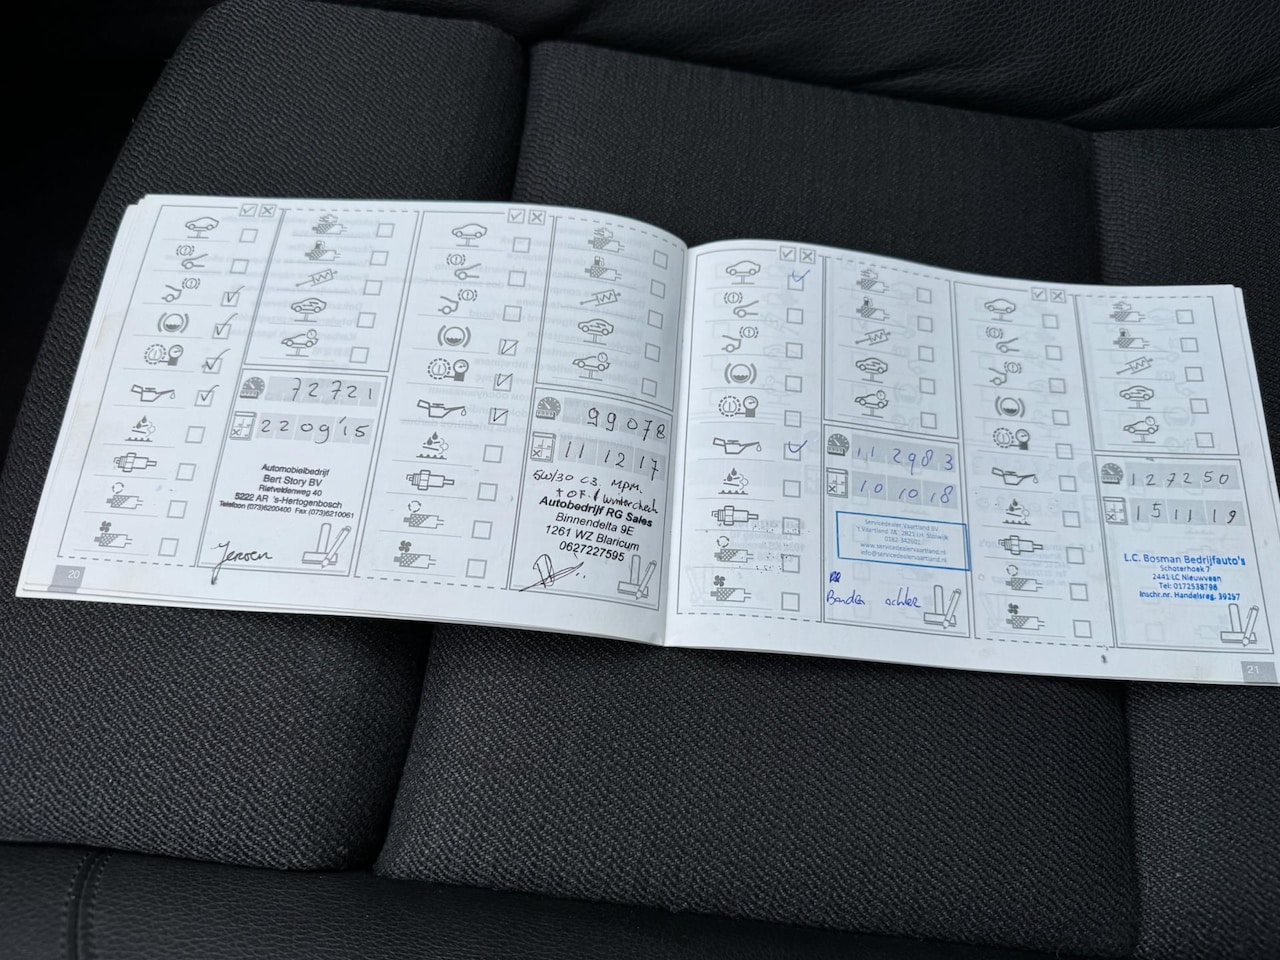 72721
22 09 '15
Automobielbedrijf
Bert Story BV
Rietveldenweg 40
5222 AR 's-Hertogenbosch
Telefoon (073)6200400 Fax (073)6210061
Jeroen
20
99078
11 12 17
5W/30 C3 MPM
+ OF. / wintercheck
Autobedrijf RG Sales
Binnendelta 9E
1261 WZ Blaricum
0627227595
112983
10 10 18
Servicedealer Vaartland BV
't Vaartland 7A, 2821 LH Stolwijk
0182-342001
www.servicedealervaartland.nl
info@servicedealervaartland.nl
Banden achter
127250
15 11 19
L.C. Bosman Bedrijfauto's
Schoterhoek 7
2441 LC Nieuwveen
Tel: 0172538796
Inschr.nr. Handelsreg. 39257
21